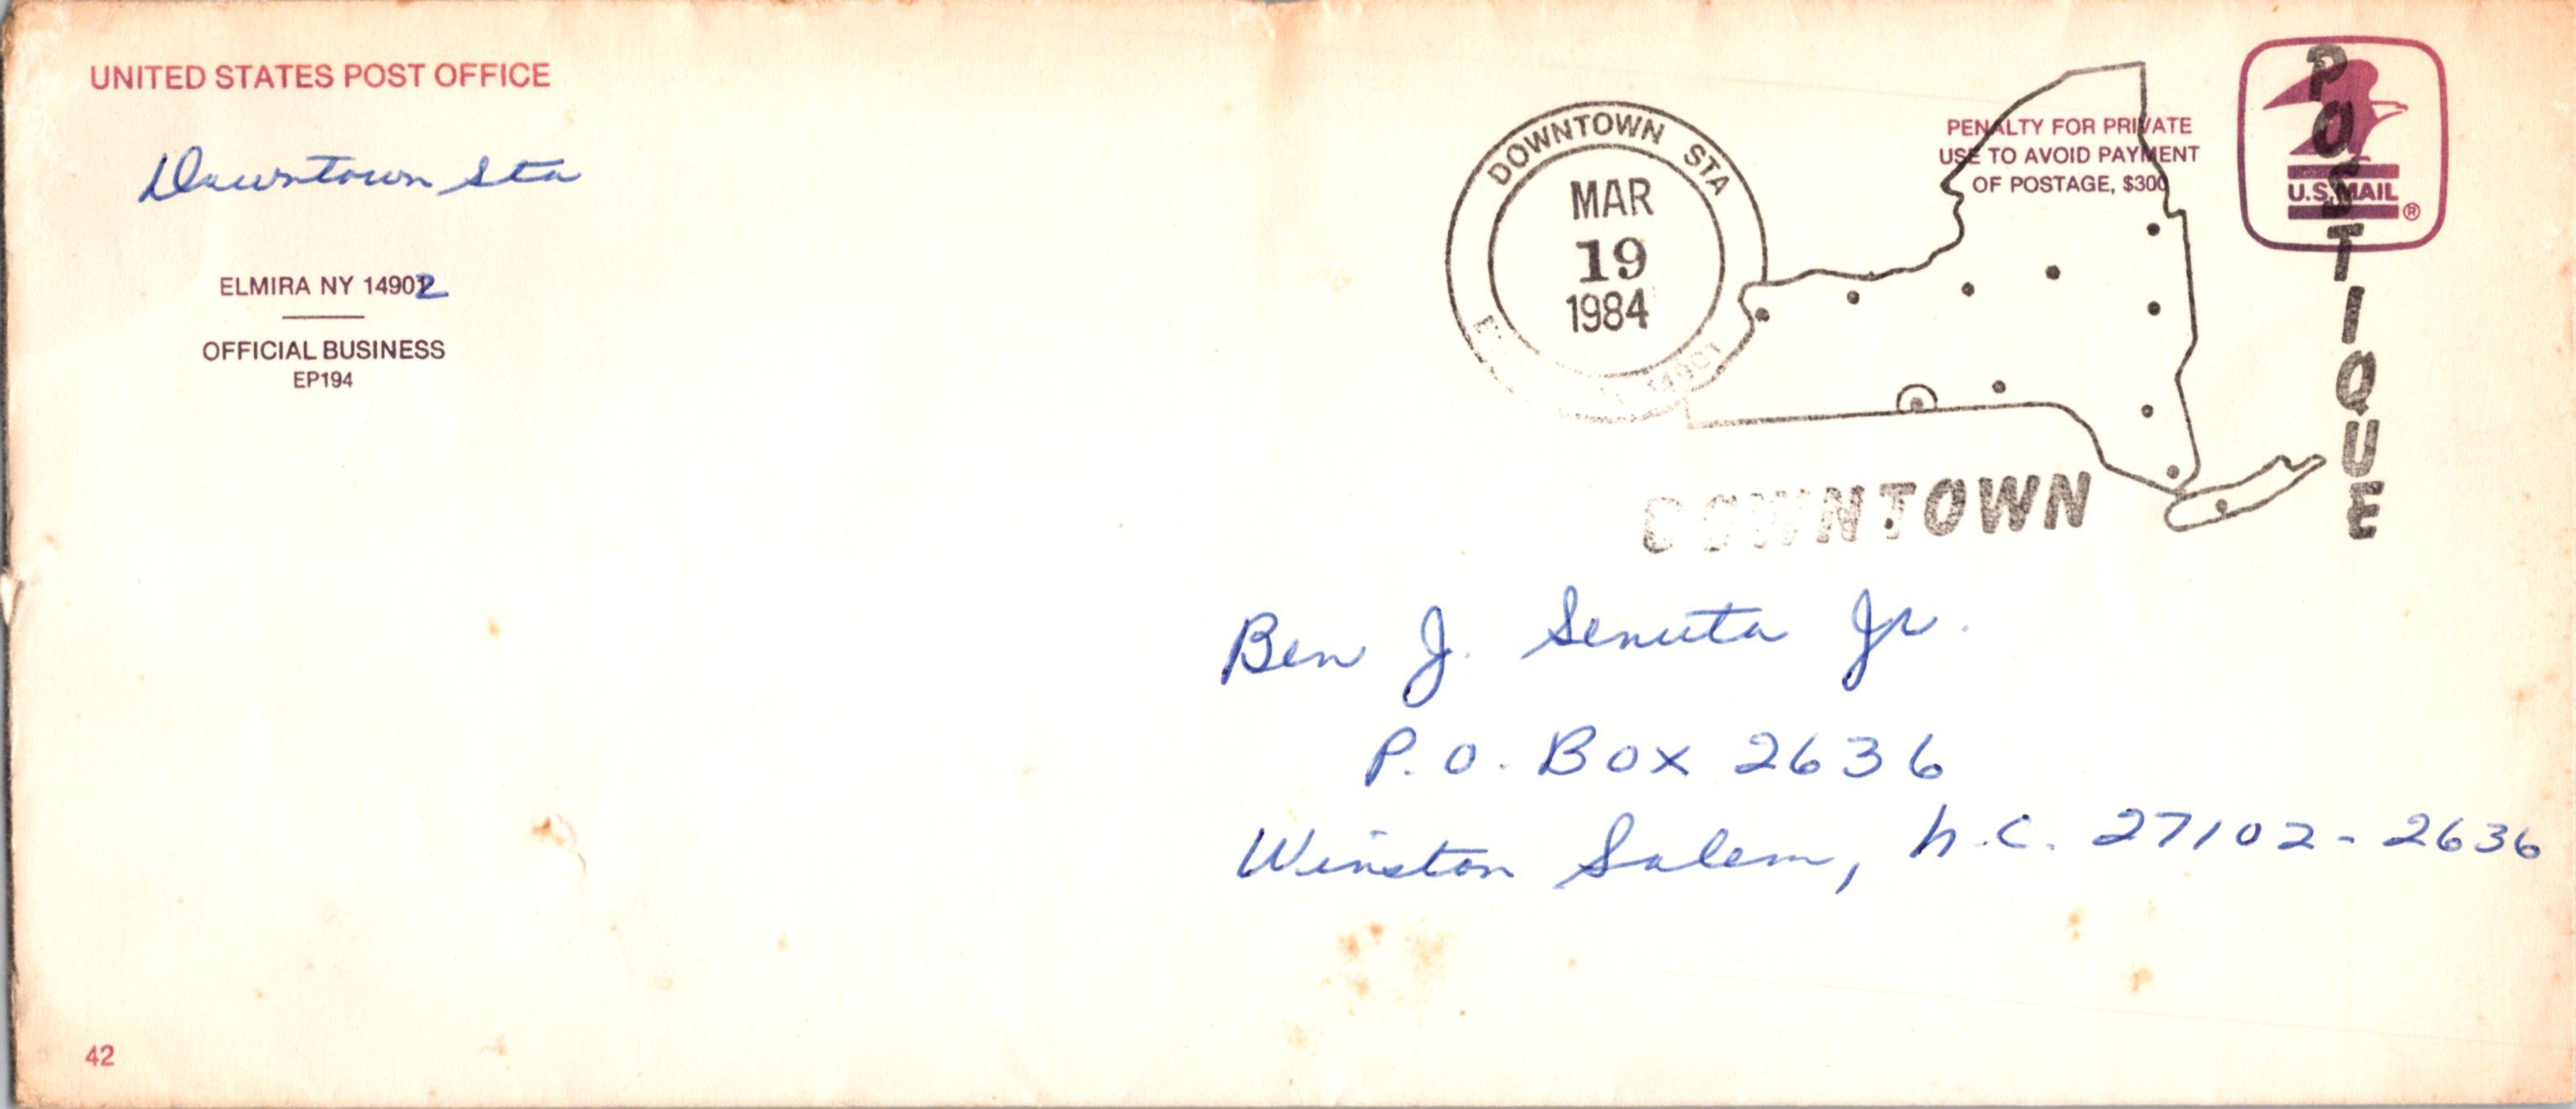 UNITED STATES POST OFFICE
Downtown Sta
ELMIRA NY 14902
OFFICIAL BUSINESS
EP194
DOWNTOWN STA
MAR
19
1984
14901
PENALTY FOR PRIVATE
USE TO AVOID PAYMENT
OF POSTAGE, $300
U.S.MAIL
®
POSTIQUE
DOWNTOWN
Ben J. Senuta Jr.
P.O. Box 2636
Winston Salem, N.C. 27102-2636
42